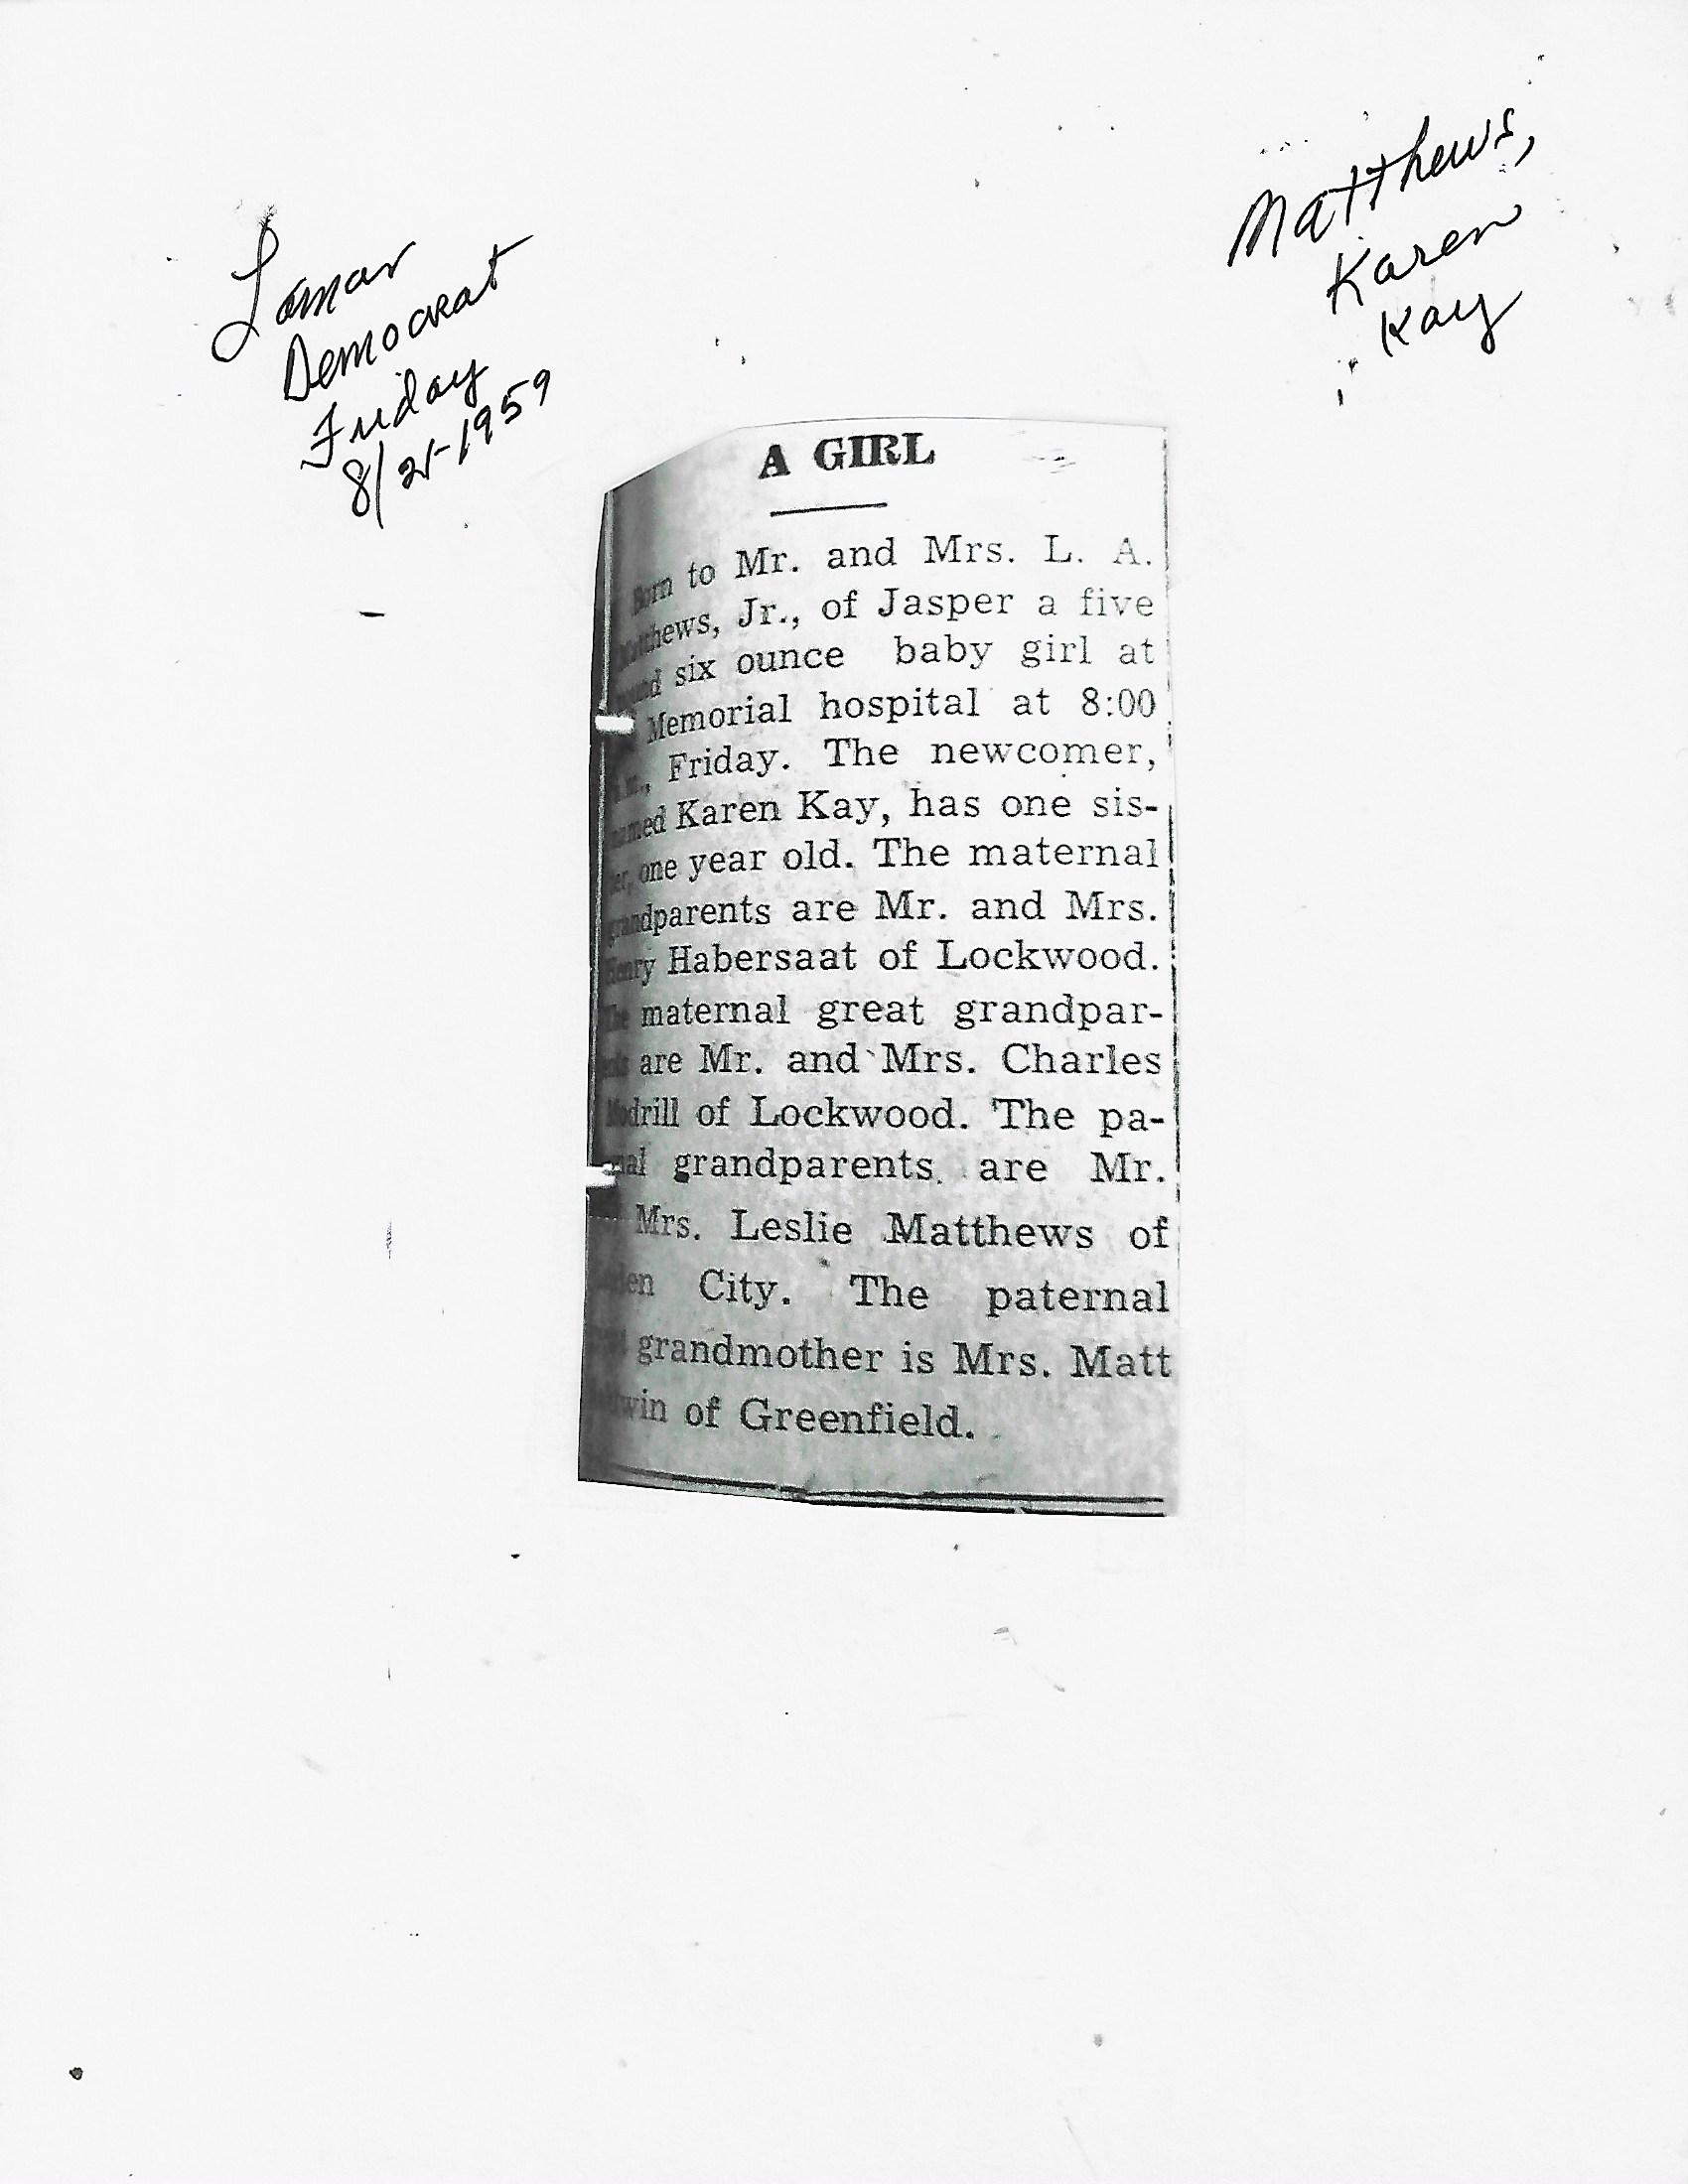 Lamar
Democrat
Friday
8/21-1959
Matthews,
Karen
Kay
A GIRL
Born to Mr. and Mrs. L. A.
Matthews, Jr., of Jasper a five
pound six ounce baby girl at
Memorial hospital at 8:00
Friday. The newcomer,
named Karen Kay, has one sis-
ter, one year old. The maternal
grandparents are Mr. and Mrs.
Henry Habersaat of Lockwood.
The maternal great grandpar-
ents are Mr. and Mrs. Charles
of Lockwood. The pa-
grandparents are Mr.
Mrs. Leslie Matthews of
City. The paternal
grandmother is Mrs. Matt
of Greenfield.